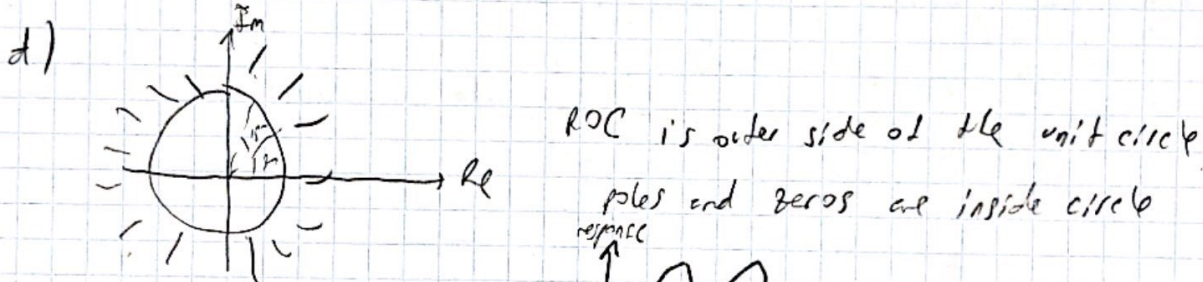 d)
Im
Re
ROC is outer side of the unit circle
poles and zeros are inside circle
response